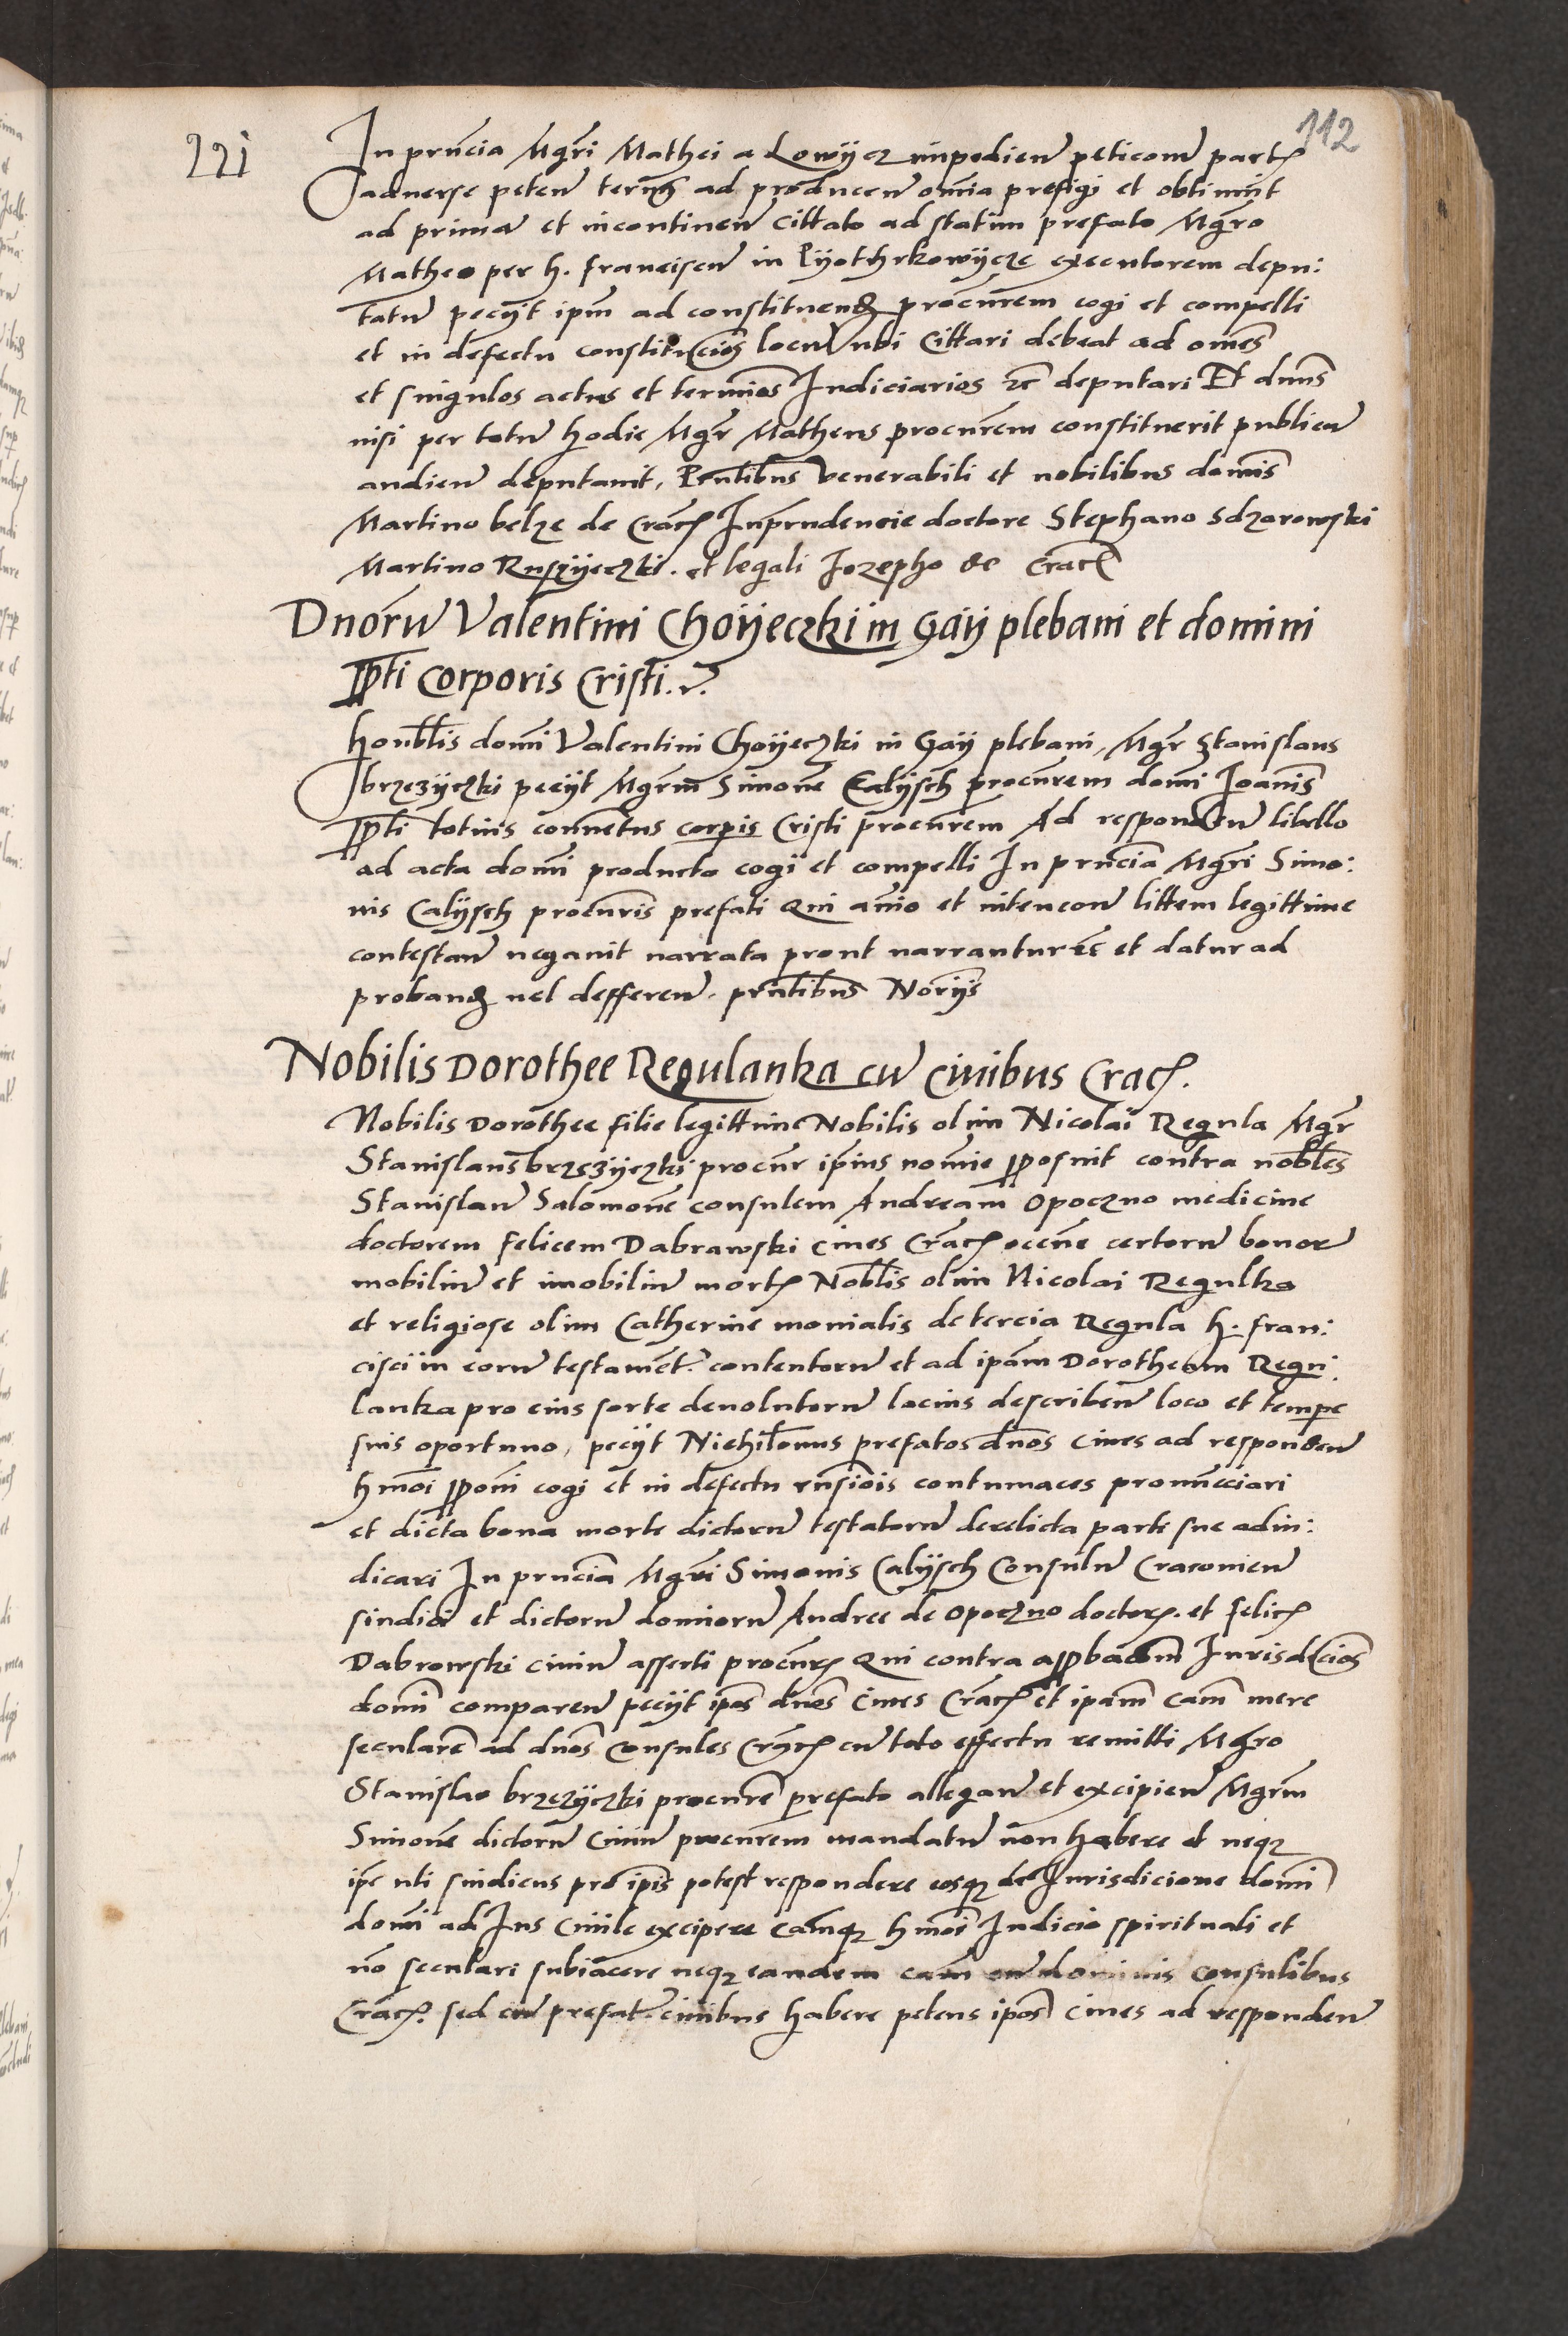 112
221
In prncia Mgri Mathei a Lowijcz impedien peticone partis
adverse peten termin ad producen omnia prefigi et obtinuit
ad prima et incontinen Cittato ad statim prefato Mgro
Matheo per h. franciscu in Pijothrkowijcze executorem depu:
tatu pecijt ipm ad constituend procurem cogi et compelli
et in defectu constitucionis locu ubi Cittari debeat ad omnes
et singulos actus et terminos Judiciarios etc deputari Et dnus
nisi per totu hodie Mgr Matheus procurem constituerit publica
audien deputavit, Prntibus venerabili et nobilibus domis
Martino belze de Crac Jnprudencie doctore Stephano Sdzarowski
Martino Ruszijeczki. et legali Jozepho de Crac
Dnoru Valentini Choijeczki in Gaij plebani et domini
ppti Corporis Cristi.
honblis domi Valentini Choijeczki in Gaij plebani, Mgr Stanislaus
brzezijczki pecijt Mgrm Simone Calijsch procurem domi Joanis
ppti totius connetus corpis Cristi procurem Ad responden libello
ad acta domi producto cogi et compelli In prncia Mgri Simo:
nis Calijsch procuris prefati Qui animo et intencone littem legittime
contestan negavit narrata prout narrantur etc et datur ad
proband vel defferen. prntibus Norijs
Nobilis Dorothee Regulanka cu Civibus Crac.
Nobilis Dorothee filie legittime Nobilis olim Nicolai Regula Mgr
Stanislaus brzezijczki procur ipius nomie pposuit contra nobles
Stanislau Salomone consulem Andream Opoczno medicine
doctorem felicem Dabrawski Cives Crac occne certoru bonor
mobiliu et imobiliu mortis Noblis olim Nicolai Regulka
et religiose olim Catherine monialis de tercia Regula h. fran:
cisci in eoru testament. contentoru et ad ipam Dorotheam Regu:
lanka pro eius sorte devolutoru lacius describen loco et tempe
suis oportuno, pecijt Nichilomus prefatos dnos Cives ad responden
hmoi pponi cogi et in defectu rnsiois contumaces pronucciari
et dicta bona morte dictoru testatoru derelicta parti sue adiu:
dicari In prncia Mgri Simonis Calijsch Consulu Cracovien
sindici et dictoru dominoru Andree de Opoczno doctoris. et felicis
Dabrowski Civiu asserti procuris Qui contra appbacom Jurisdicios
domi comparen pecijt ipos dnos Cives Crac et ipam cam mere
secularem ad dnos Consules Crac cu toto effectu remitti Mgro
Stanislao brzezijczki procure prefato allegan et excipien Mgrm
Simone dictoru Civiu procurem mandatu non habere et neqz
ipe uti sindicus pro ipis potest respondere eosqz de Jurisdicione domi
domi ad Jus Civile excipere Camqz hmoi Judicio spirituali et
no seculari subiacere neqz eandem cam cu dominis Consulibus
Crac. sed cu prefat. civibus habere petens ipos Cives ad responden